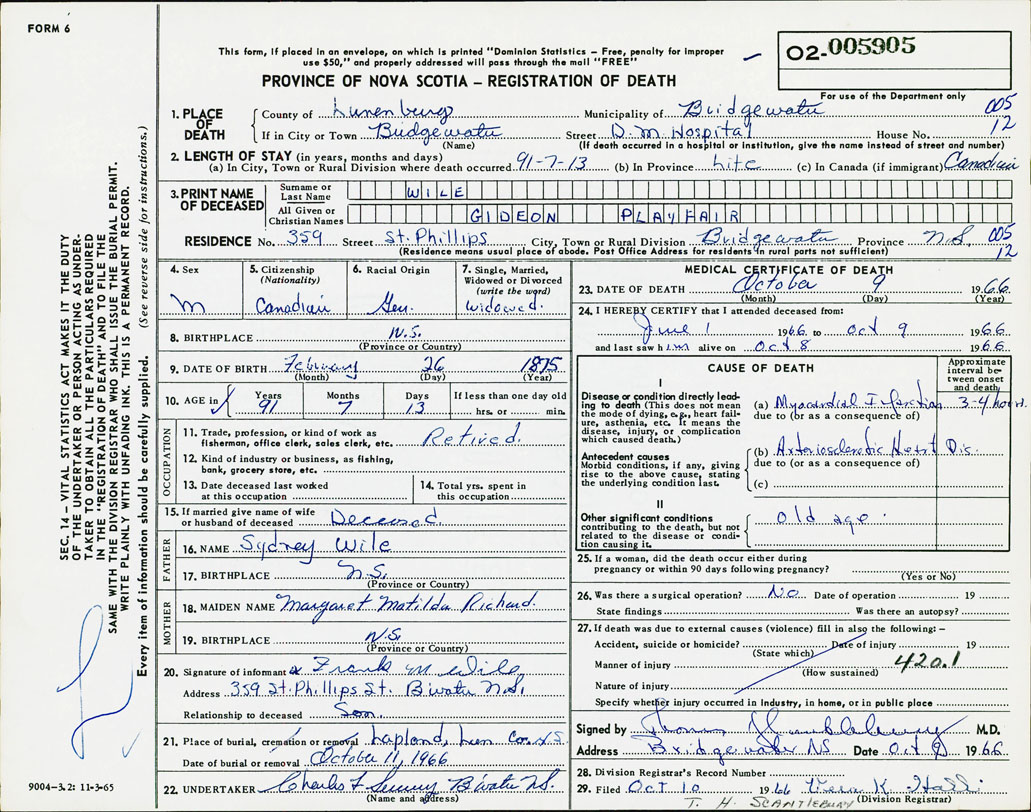 FORM 6
This form, if placed in an envelope, on which is printed "Dominion Statistics – Free, penalty for improper
use $50," and properly addressed will pass through the mail "FREE"
PROVINCE OF NOVA SCOTIA – REGISTRATION OF DEATH
02-005905
For use of the Department only
SEC. 14 – VITAL STATISTICS ACT MAKES IT THE DUTY
OF THE UNDERTAKER OR PERSON ACTING AS UNDER-
TAKER TO OBTAIN ALL THE PARTICULARS REQUIRED
IN THE "REGISTRATION OF DEATH" AND TO FILE THE
SAME WITH THE DIVISION REGISTRAR WHO SHALL ISSUE THE BURIAL PERMIT.
WRITE PLAINLY WITH UNFADING INK. THIS IS A PERMANENT RECORD.
Every item of information should be carefully supplied. (See reverse side for instructions.)
1. PLACE OF DEATH
County of Lunenburg Municipality of Bridgewater 005
If in City or Town Bridgewater Street D. M. Hospital House No. 12
(Name) (If death occurred in a hospital or institution, give the name instead of street and number)
2. LENGTH OF STAY (in years, months and days)
(a) In City, Town or Rural Division where death occurred 91-7-13 (b) In Province Life (c) In Canada (if immigrant) Canadian
3. PRINT NAME OF DECEASED
Surname or Last Name WILE
All Given or Christian Names GIDEON PLAYFAIR
RESIDENCE No. 359 Street St. Phillips City, Town or Rural Division Bridgewater Province N.S. 005
(Residence means usual place of abode. Post Office Address for residents in rural parts not sufficient) 12
4. Sex
M
5. Citizenship
(Nationality)
Canadian
6. Racial Origin
Ger.
7. Single, Married,
Widowed or Divorced
(write the word)
Widowed.
8. BIRTHPLACE N.S.
(Province or Country)
9. DATE OF BIRTH February 26 1875
(Month) (Day) (Year)
10. AGE in Years 91 Months 7 Days 13 If less than one day old
hrs. or min.
OCCUPATION
11. Trade, profession, or kind of work as
fisherman, office clerk, sales clerk, etc. Retired.
12. Kind of industry or business, as fishing,
bank, grocery store, etc.
13. Date deceased last worked
at this occupation
14. Total yrs. spent in
this occupation
15. If married give name of wife
or husband of deceased Deceased.
FATHER
16. NAME Sydney Wile
17. BIRTHPLACE N.S.
(Province or Country)
MOTHER
18. MAIDEN NAME Margaret Matilda Richard.
19. BIRTHPLACE N.S.
(Province or Country)
20. Signature of informant x Frank M Wile
Address 359 St. Phillips St. B'water N.S.
Relationship to deceased Son.
21. Place of burial, cremation or removal Lapland, Lun Co. N.S.
Date of burial or removal October 11, 1966
22. UNDERTAKER Charles B'water N.S.
(Name and address)
9004-3.2: 11-3-65
MEDICAL CERTIFICATE OF DEATH
23. DATE OF DEATH October 9 1966
(Month) (Day) (Year)
24. I HEREBY CERTIFY that I attended deceased from:
June 1 1966 to Oct 9 1966
and last saw him alive on Oct 8 1966
CAUSE OF DEATH
Approximate
interval be-
tween onset
and death
I
Disease or condition directly lead-
ing to death (This does not mean
the mode of dying, e.g., heart fail-
ure, asthenia, etc. It means the
disease, injury, or complication
which caused death.)
(a) Myocardial Infarction 3-4 hours.
due to (or as a consequence of)
Antecedent causes
Morbid conditions, if any, giving
rise to the above cause, stating
the underlying condition last.
(b) Arteriosclerotic Heart Dis.
due to (or as a consequence of)
(c)
II
Other significant conditions
contributing to the death, but not
related to the disease or condi-
tion causing it.
Old age.
25. If a woman, did the death occur either during
pregnancy or within 90 days following pregnancy?
(Yes or No)
26. Was there a surgical operation? No Date of operation 19
State findings Was there an autopsy?
27. If death was due to external causes (violence) fill in also the following:–
Accident, suicide or homicide? Date of injury 19
(State which)
Manner of injury 420.1
(How sustained)
Nature of injury
Specify whether injury occurred in Industry, in home, or in public place
Signed by M.D.
Address Bridgewater NS Date Oct 9 1966
28. Division Registrar's Record Number
29. Filed Oct 10 1966 Vera K.
(Division Registrar)
T. H. SCANTLEBURY